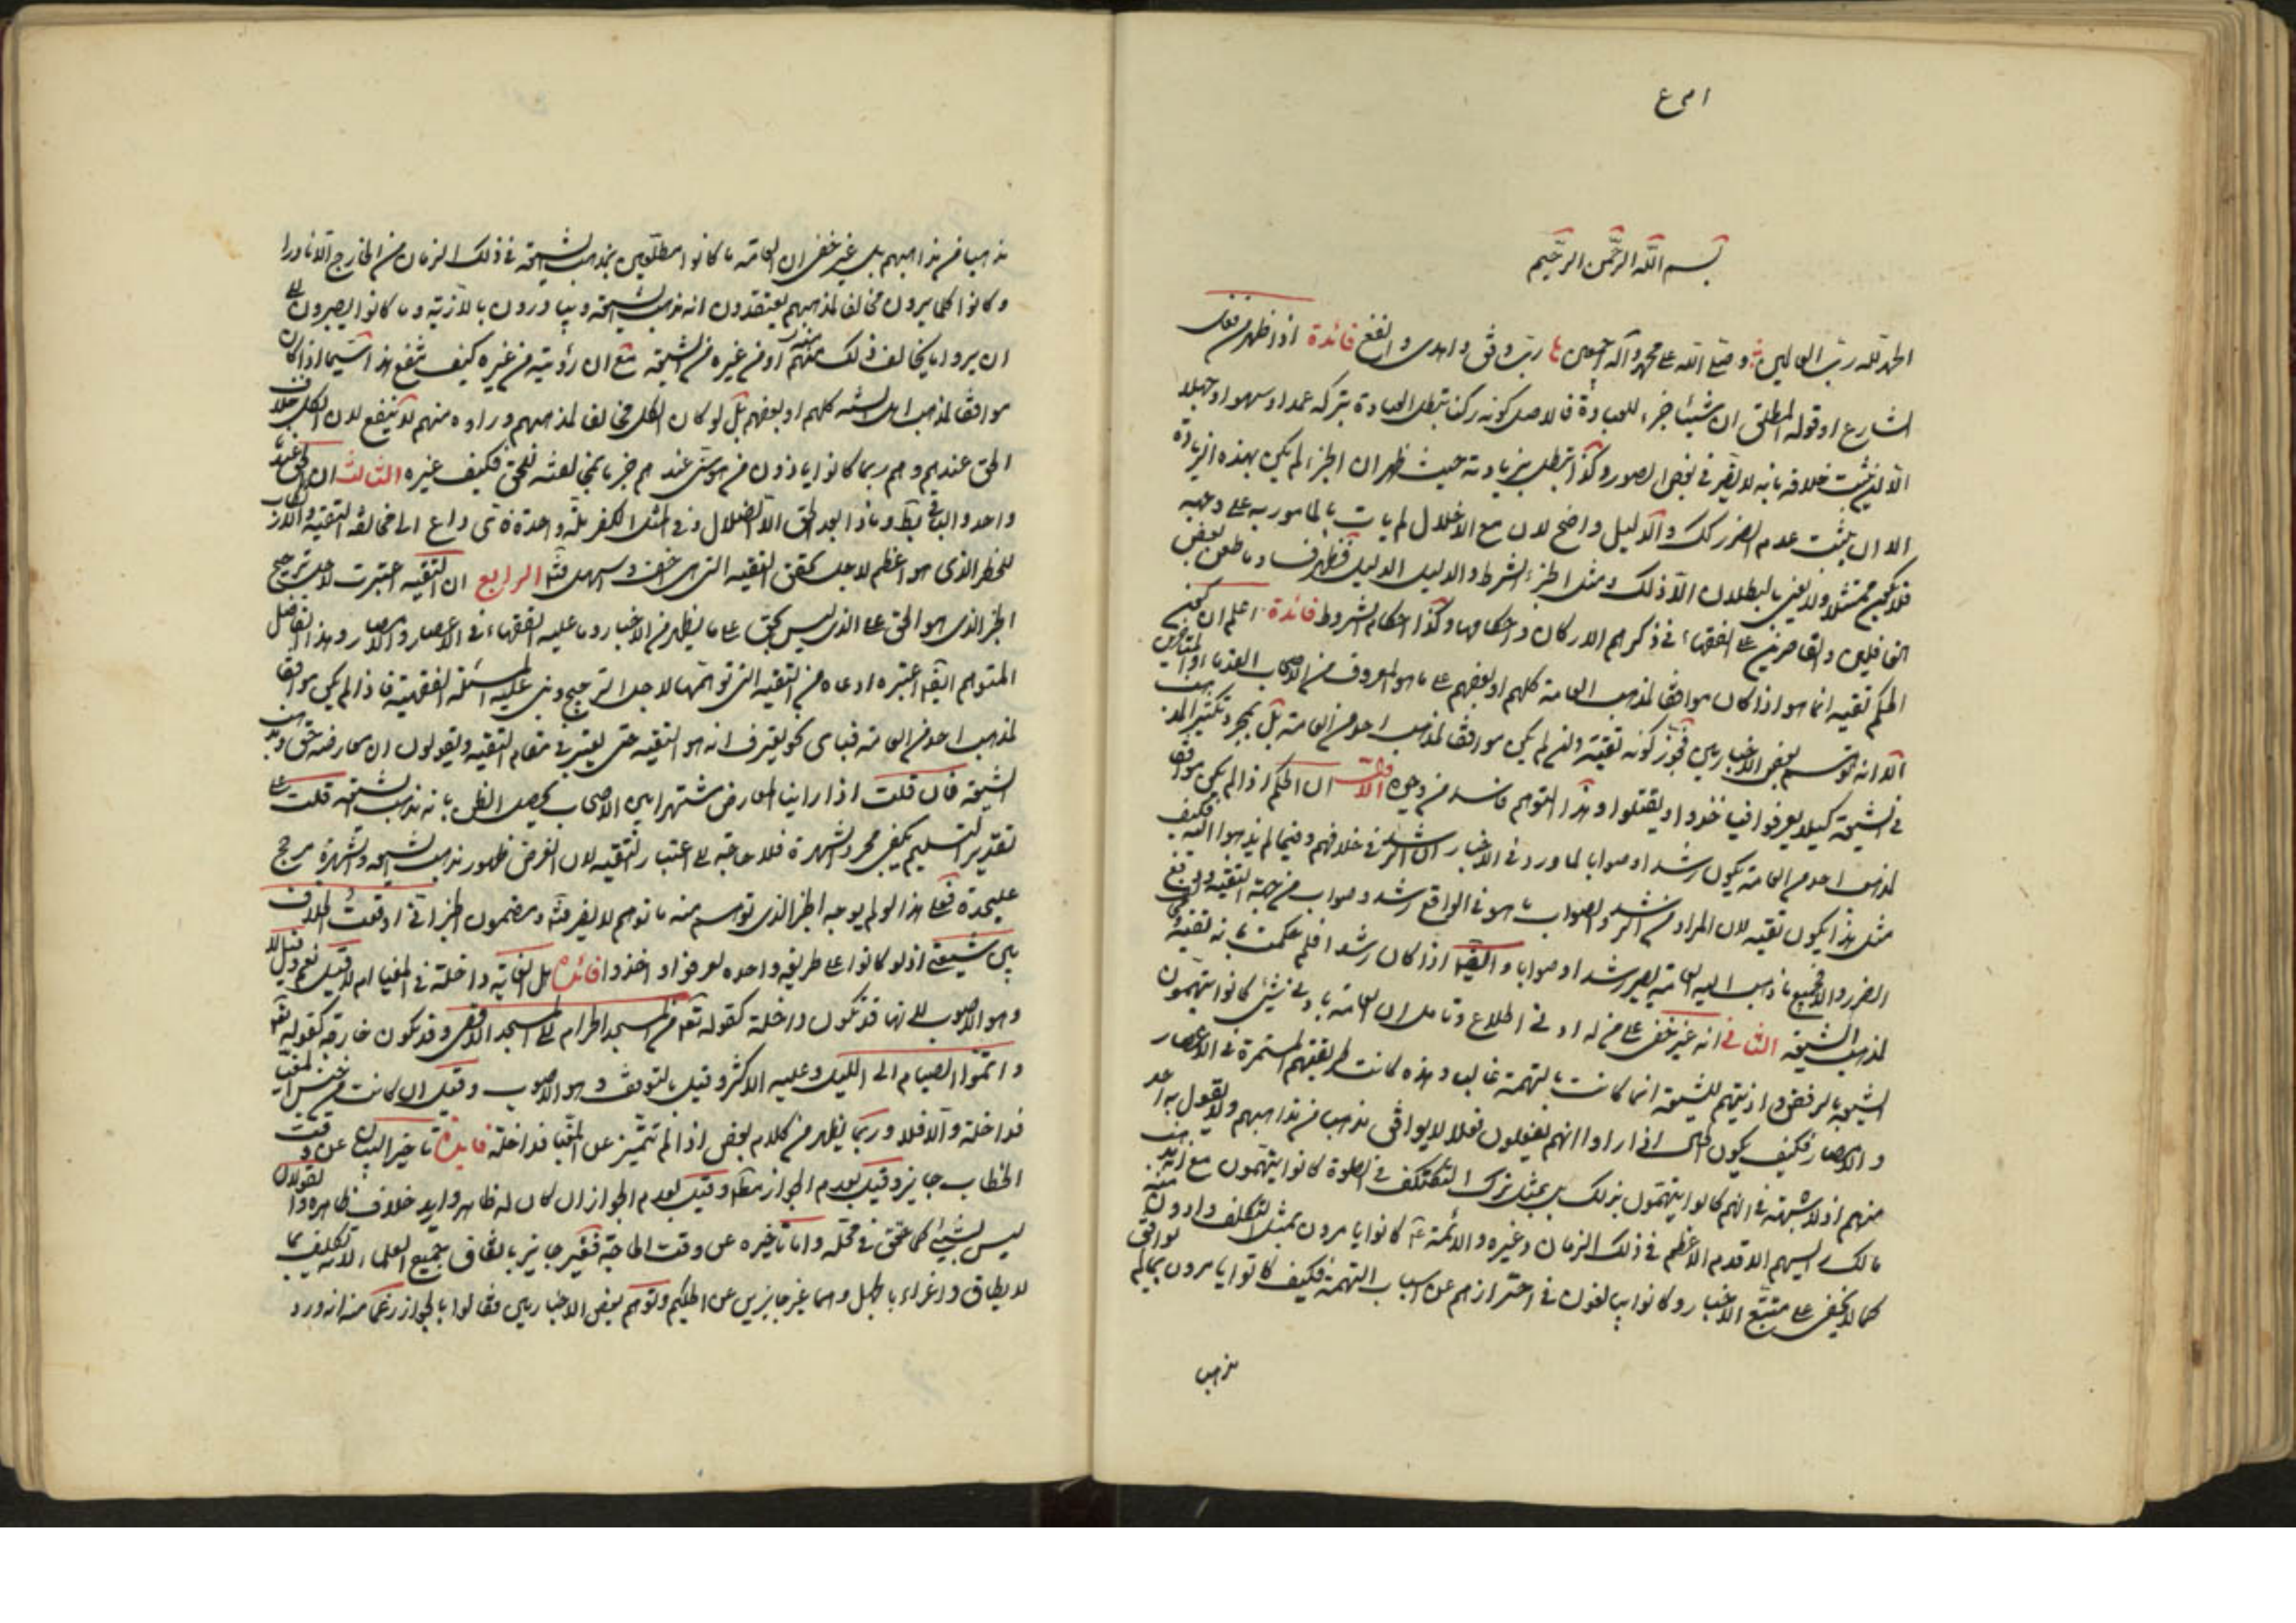 بسم الله الرحمن الرحيم
الحمد لله رب العالمين و صلى الله على محمد وآله اجمعين رب وفق واهد وانفع فائدة اذا ظهر من فعل
الشارع او قوله المطلق ان شيئا جزء للعبادة فالاصل كونه ركنا تبطل العبادة بتركه عمدا او سهوا او جهلا
الا ان يثبت خلافه بانه لا يضر في بعض الصور وكذا تبطل بزيادته حيث ظهر ان الجزء لم يكن بهذه الزيادة
الا ان يثبت عدم الضرر كك والدليل واضح لان مع الاخلال لم يات بالمامور به على وجهه
فلا يكون ممتثلا ولا نعني بالبطلان الا ذلك ومثل الجزء الشرط والدليل الدليل فظهر فساد ما طعن بعض
الغافلين والقاصرين على الفقهاء في ذكرهم الاركان واحكامها وكذا احكام الشروط فائدة اعلم ان
الحكم تقية انما هو اذا كان موافقا لمذهب العامة كلهم او بعضهم على ما هو المعروف من الاصحاب القدماء والمتاخرين
الا انه توهم بعض الاخباريين فجوز كونه تقية وان لم يكن موافقا لمذهب احد من العامة بل بمجرد تكثير المذهب
في الشيعة كيلا يعرفوا فيؤخذوا او يقتلوا وهذا التوهم فاسد من وجوه الاول ان الحكم اذا لم يكن موافقا
لمذهب احد من العامة يكون رشدا وصوابا لما ورد في الاخبار ان الرشد في خلافهم وفيما لم يذهبوا اليه فكيف
مثل هذا يكون تقية لان المراد من الرشد والصواب ما هو في الواقع رشد وصواب من جهة التقية ودفع
الضرر والا فجميع ما ذهب اليه العامة يصير رشدا وصوابا وايضا اذا كان رشدا فلم حكمت بانه تقية
لمذهب الشيعة الثاني انه غير خفي على من له ادنى اطلاع وتامل ان العامة بادنى شيء كانوا يتهمون
الشيعة بالرفض واذيتهم للشيعة انما كانت بالتهمة غالبا وهذه كانت طريقتهم المستمرة في الاعصار
والامصار فكيف يكون الحال اذا راوا انهم يفعلون فعلا لا يوافق مذهبا من مذاهبهم ولا يقول به احد
منهم اذ لا شبهة في انهم كانوا يتهمون بذلك بل بمثل ترك التكتف في الصلوة كانوا يتهمون مع انه مذهب
مالك رئيسهم الاقدم الاعظم في ذلك الزمان وغيره والائمة كانوا يامرون بمثل التكتف وادون منه
كما لا يخفى على متتبع الاخبار وكانوا يبالغون في احترازهم عن اسباب التهمة فكيف كانوا يامرون بما لم يوافق
مذهب
مذهبا من مذاهبهم بل غير خفي ان العامة ما كانوا مطلعين بمذهب الشيعة في ذلك الزمان من الخارج الا نادرا
وكانوا كلما يرون مخالفا لمذهبهم يعتقدون انه مذهب الشيعة ويبادرون بالاذية وما كانوا يصبرون الى
ان يروا ما يخالف ذلك منهم او من غيره من الشيعة مع ان رؤيته من غيره كيف تنفع هذا سيما اذا كان
موافقا لمذهب اهل السنة كلهم او بعضهم بل لو كان الكل مخالفا لمذهبهم وراوه منهم لا ينفع لان الكل خلاف
الحق عندهم وهم ربما كانوا ياذون من هو سني عندهم جزما بمخالفته للحق فكيف غيره الثالث ان الحق عندنا
واحد والباقي باطل وماذا بعد الحق الا الضلال وفي المثل الكفر ملة واحدة فاي داع الى مخالفة التقية وارتكاب
للخطر الذي هو اعظم لاجل تحقق التقية التي هي اخف واسهل فتا الرابع ان التقية اعتبرت لاجل ترجيح
الخبر الذي هو الحق على الذي ليس بحق على ما يظهر من الاخبار وما عليه الفقهاء في الاعصار والامصار وهذا الفاضل
المتوهم ايضا اعتبره وادعاه من التقية التي توهمها لاجل الترجيح وبنى عليه المسئلة الفقهية فاذا لم يكن موافقا
لمذهب احد من العامة فباي نحو يعرف انه هو التقية حتى يعتبر في مقام التقية ويقولون ان معارضه حق ومذهب
الشيعة فان قلت اذا راينا المعارض مشتهرا بين الاصحاب يحصل الظن بانه مذهب الشيعة قلت على
تقدير التسليم يكفي مجرد الشهرة فلا حاجة الى اعتبار التقية لان الغرض ظهور مذهب الشيعة والشهرة مرجح
عليحدة فعلى هذا لو لم يوجد الخبر الذي توهم منه ما توهم لا يضر منه ومضمون الخبر اني اوقعت الخلاف
بين شيعتي اذ لو كانوا على طريقة واحدة لعرفوا واخذوا فائدة هل الغاية داخلة في المغيا ام لا قيل نعم وقيل لا
وهو الاصوب لانها قد تكون داخلة كقوله تعا من المسجد الحرام الى المسجد الاقصى وقد تكون خارجة كقوله تعا
واتموا الصيام الى الليل وعليه الاكثر وقيل بالتوقف وهو الاصوب وقيل ان كانت من جنس المغيا
فداخلة والا فلا وربما يظهر من كلام بعض اذا لم تتميز عن المغيا فداخلة فايدة تاخير البيان عن وقت
الخطاب جايز وقيل بعدم الجواز مطلقا وقيل بعدم الجواز ان كان له ظاهر واريد خلاف ظاهره والقولان
ليس بشيء كما حقق في محله واما تاخيره عن وقت الحاجة فغير جايز باتفاق جميع العلماء لانه تكليف بما
لا يطاق واغراء بالجهل وهما غير جايزين عن الحكيم وتوهم بعض الاخباريين فقالوا بالجواز زعما منه انه ورد